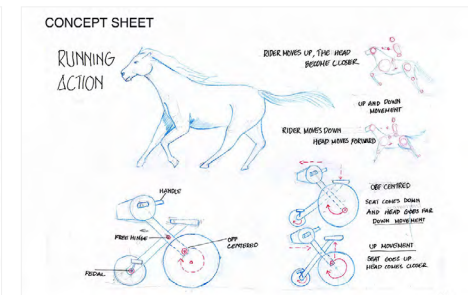 CONCEPT SHEET
RUNNING
ACTION
RIDER MOVES UP, THE HEAD
BECOME CLOSER
UP AND DOWN
MOVEMENT
RIDER MOVES DOWN
HEAD MOVES FORWARD
HANDLE
FREE HINGE
OFF
CENTERED
PEDAL
OFF CENTRED
SEAT COMES DOWN
AND HEAD GOES FAR
DOWN MOVEMENT
UP MOVEMENT
SEAT GOES UP
HEAD COMES CLOSER